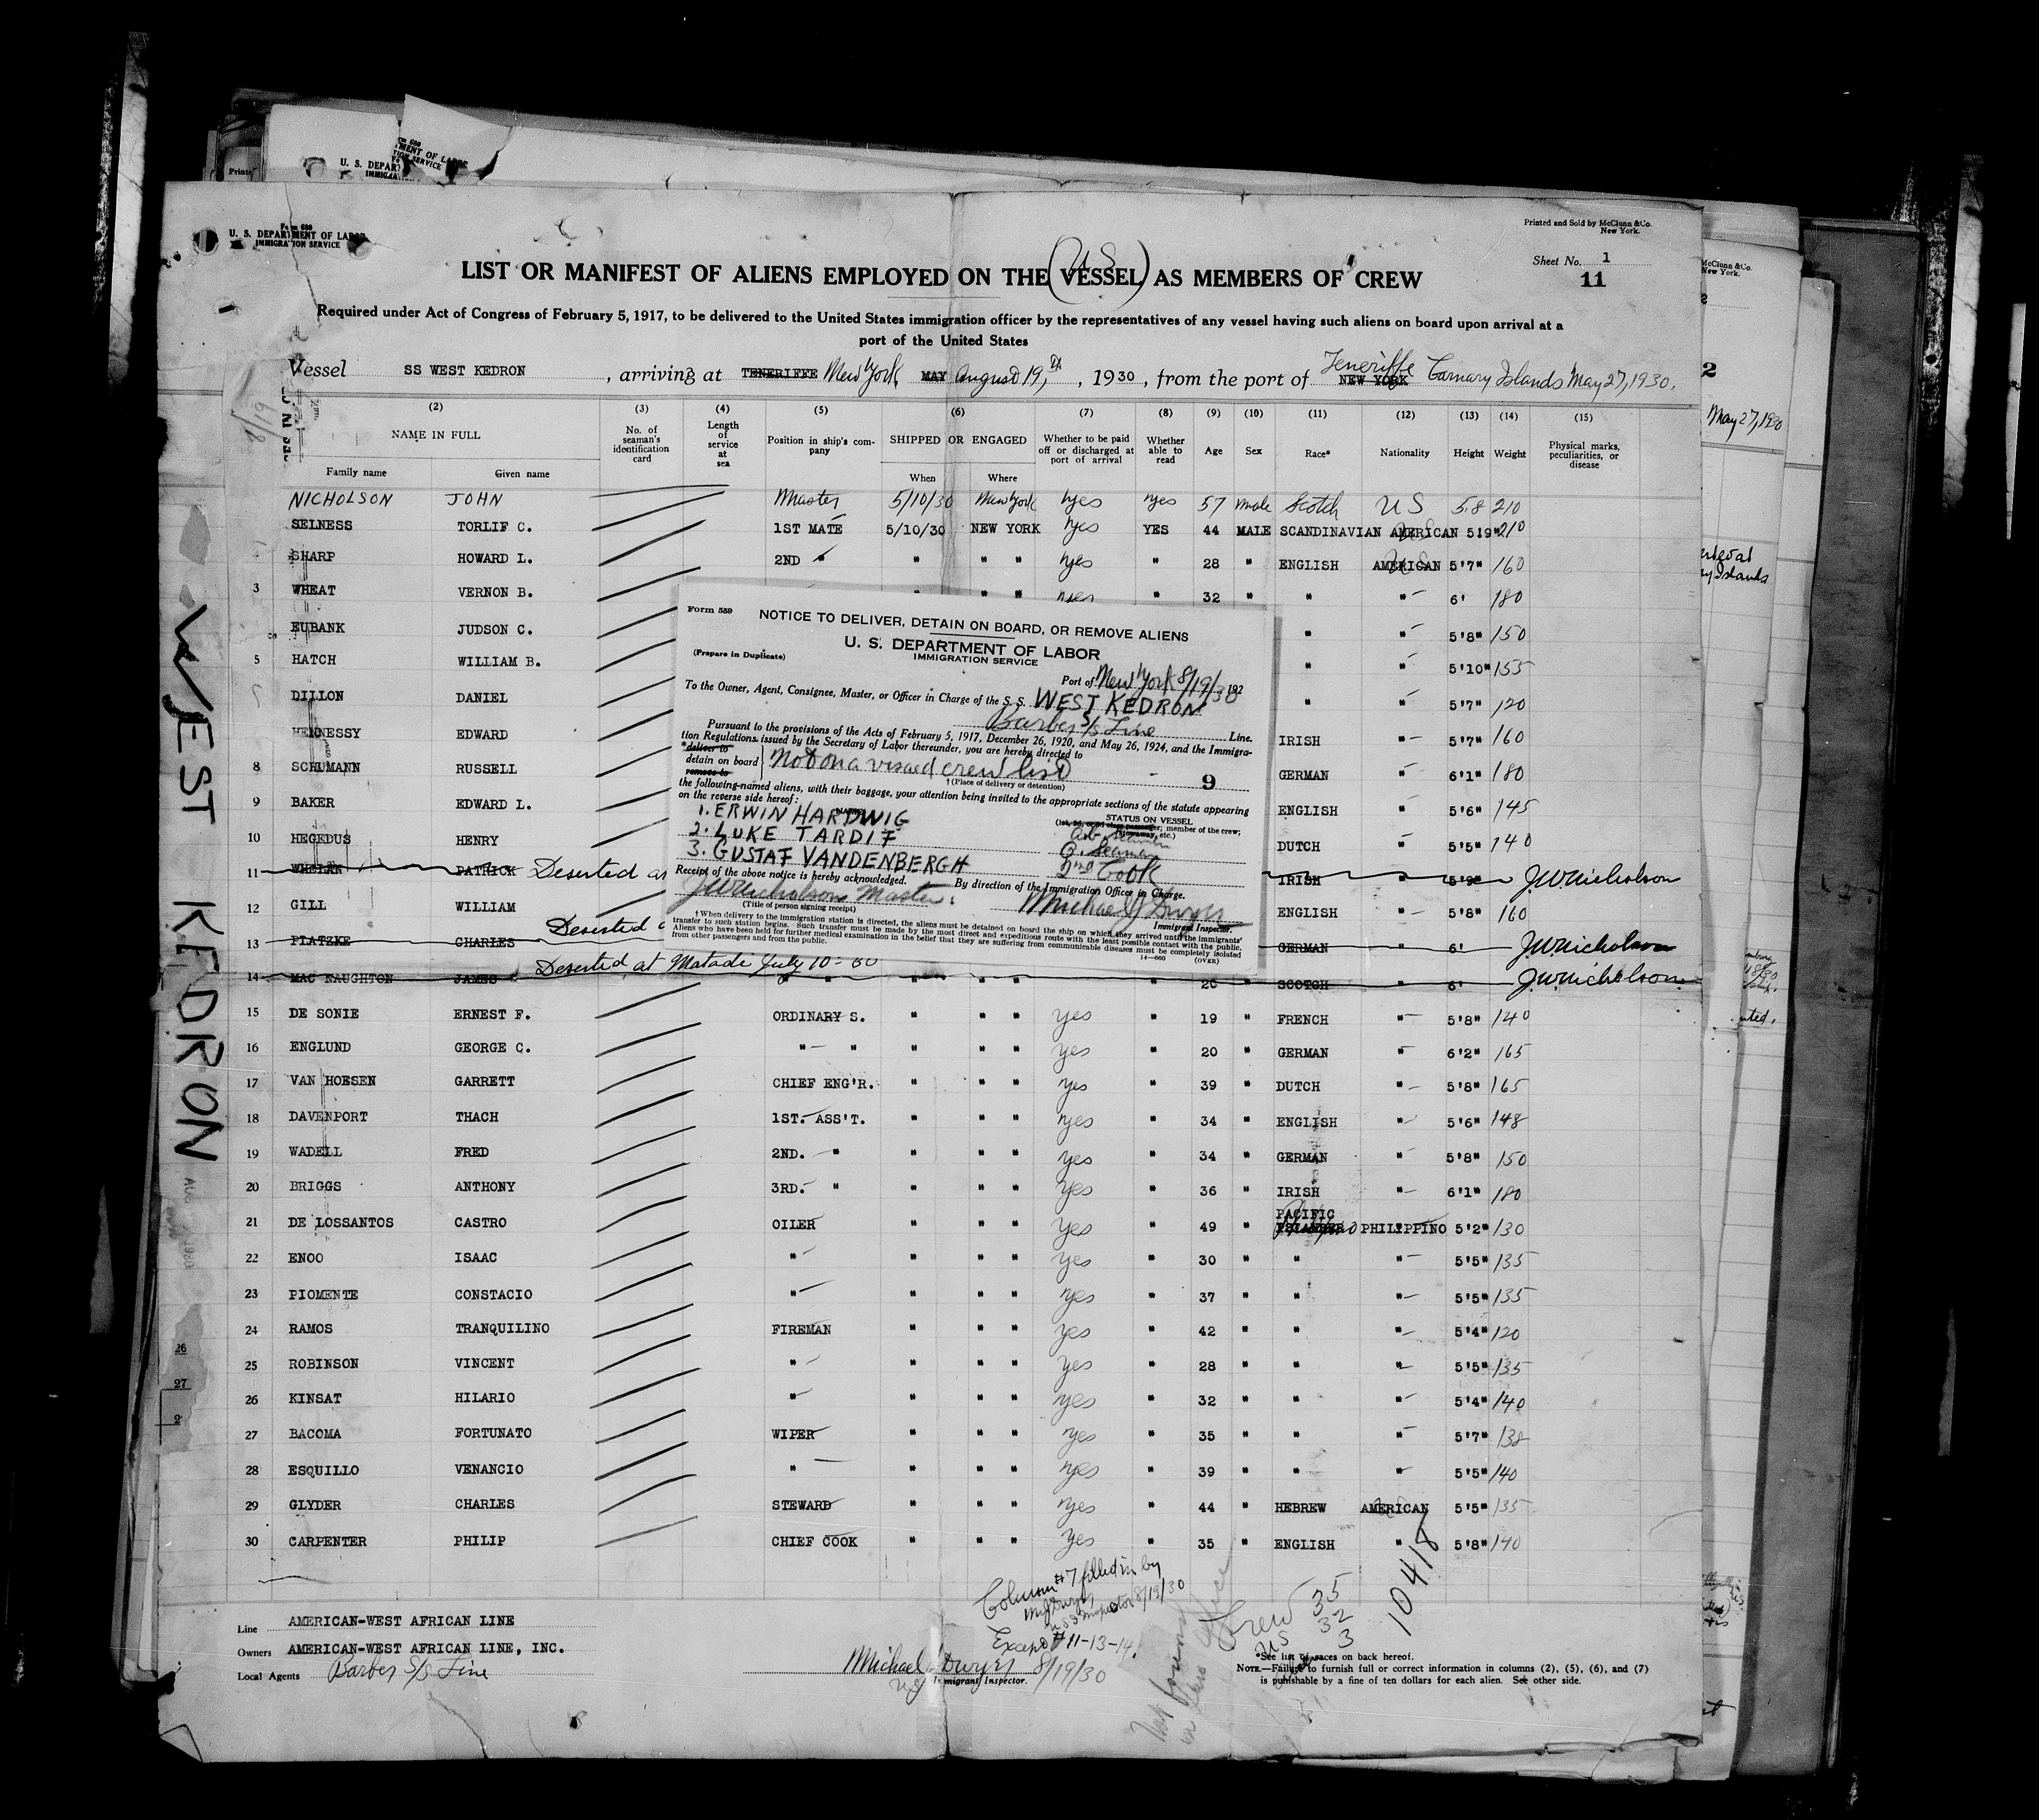 Form 680
U. S. DEPARTMENT OF LABOR
IMMIGRATION SERVICE
Printed and Sold by McClunn & Co.
New York.
Sheet No. 1
11
(US)
LIST OR MANIFEST OF ALIENS EMPLOYED ON THE VESSEL AS MEMBERS OF CREW
Required under Act of Congress of February 5, 1917, to be delivered to the United States immigration officer by the representatives of any vessel having such aliens on board upon arrival at a
port of the United States
Vessel SS WEST KEDRON, arriving at TENERIFFE New York MAY August 19, th, 1930, from the port of NEW YORK Teneriffe Canary Islands May 27, 1930.
(2) (3) (4) (5) (6) (7) (8) (9) (10) (11) (12) (13) (14) (15)
NAME IN FULL Family name Given name
No. of seaman's identification card
Length of service at sea
Position in ship's company
SHIPPED OR ENGAGED When Where
Whether to be paid off or discharged at port of arrival
Whether able to read
Age Sex Race* Nationality Height Weight
Physical marks, peculiarities, or disease
NICHOLSON JOHN Master 5/10/30 New York yes yes 57 male Scotch US 5.8 210
SELNESS TORLIF C. 1ST MATE 5/10/30 NEW YORK yes YES 44 MALE SCANDINAVIAN AMERICAN 5'9" 210
SHARP HOWARD L. 2ND " " " " yes " 28 " ENGLISH AMERICAN 5'7" 160
3 WHEAT VERNON B. " " yes 32 " " " 6' 180
EUBANK JUDSON C. " " 5'8" 150
5 HATCH WILLIAM B. " " 5'10" 155
DILLON DANIEL " " 5'7" 120
HENNESSY EDWARD IRISH " 5'7" 160
8 SCHUMANN RUSSELL GERMAN " 6'1" 180
9 BAKER EDWARD L. ENGLISH " 5'6" 145
10 HEGEDUS HENRY DUTCH " 5'5" 140
11 WHELAN PATRICK Deserted IRISH " 5'9" J.W. Nicholson
12 GILL WILLIAM ENGLISH " 5'8" 160
13 PLATZKE CHARLES Deserted GERMAN " 6' J.W. Nicholson
14 MAC NAUGHTON JAMES Deserted at Matadi July 10-30 " " " " " " SCOTCH " 6' J.W. Nicholson
15 DE SONIE ERNEST F. ORDINARY S. " " " yes " 19 " FRENCH " 5'8" 140
16 ENGLUND GEORGE C. " " " " " yes " 20 " GERMAN " 6'2" 165
17 VAN HOESEN GARRETT CHIEF ENG'R. " " " yes " 39 " DUTCH " 5'8" 165
18 DAVENPORT THACH 1ST. ASS'T. " " " yes " 34 " ENGLISH " 5'6" 148
19 WADELL FRED 2ND. " " " " yes " 34 " GERMAN " 5'8" 150
20 BRIGGS ANTHONY 3RD. " " " " yes " 36 " IRISH " 6'1" 180
21 DE LOSSANTOS CASTRO OILER " " " yes " 49 " PACIFIC ISLANDER PHILIPPINO 5'2" 130
22 ENOO ISAAC " " " " yes " 30 " " " 5'5" 135
23 PIOMENTE CONSTACIO " " " " yes " 37 " " " 5'5" 135
24 RAMOS TRANQUILINO FIREMAN " " " yes " 42 " " " 5'4" 120
25 ROBINSON VINCENT " " " " yes " 28 " " " 5'5" 135
26 KINSAT HILARIO " " " " yes " 32 " " " 5'4" 140
27 BACOMA FORTUNATO WIPER " " " yes " 35 " " " 5'7" 138
28 ESQUILLO VENANCIO " " " " yes " 39 " " " 5'5" 140
29 GLYDER CHARLES STEWARD " " " yes " 44 " HEBREW AMERICAN 5'5" 135
30 CARPENTER PHILIP CHIEF COOK " " " yes " 35 " ENGLISH " 5'8" 140
Form 559
NOTICE TO DELIVER, DETAIN ON BOARD, OR REMOVE ALIENS
U. S. DEPARTMENT OF LABOR
IMMIGRATION SERVICE
(Prepare in Duplicate)
Port of New York 8/19/30 192
To the Owner, Agent, Consignee, Master, or Officer in Charge of the S. S. WEST KEDRON
Barber S/S Line Line.
Pursuant to the provisions of the Acts of February 5, 1917, December 26, 1920, and May 26, 1924, and the Immigra-
tion Regulations issued by the Secretary of Labor thereunder, you are hereby directed to
*deliver to
detain on board
remove to
Not on a visaed crew list 9
†(Place of delivery or detention)
the following-named aliens, with their baggage, your attention being invited to the appropriate sections of the statute appearing
on the reverse side hereof:
STATUS ON VESSEL
member of the crew;
1. ERWIN HARTWIG A.B. Seaman
2. LUKE TARDIF O. Seaman
3. GUSTAF VANDENBERGH 2nd Cook
Receipt of the above notice is hereby acknowledged.
By direction of the Immigration Officer in Charge.
J W Nicholson Master.
Michael J Dwyer
(Title of person signing receipt)
Immigrant Inspector.
†When delivery to the immigration station is directed, the aliens must be detained on board the ship on which they arrived until the immigrants'
transfer to such station begins. Such transfer must be made by the most direct and expeditious route with the least possible contact with the public.
Aliens who have been held for further medical examination in the belief that they are suffering from communicable diseases must be completely isolated
from other passengers and from the public.
14—660 (OVER)
WEST KEDRON
8/19
Column #7 filled in by
Inspector 8/19/30
Except #11-13-14.
Crew 35
US 32
3
10418
Line AMERICAN-WEST AFRICAN LINE
Owners AMERICAN-WEST AFRICAN LINE, INC.
Local Agents Barber S/S Line
Michael J Dwyer 8/19/30
Immigrant Inspector.
*See list of races on back hereof.
NOTE.—Failure to furnish full or correct information in columns (2), (5), (6), and (7)
is punishable by a fine of ten dollars for each alien. See other side.
McClunn & Co.
New York.
2
May 27, 1930
26
27